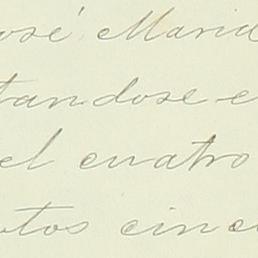 José Maria
tandose e
el cuatro
ntos cinc